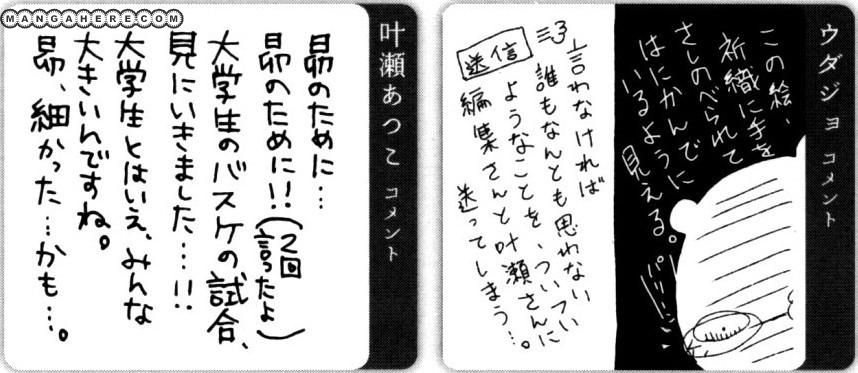 MANGAHERE.COM
ウダジョ コメント
この絵、
祈織に手を
さしのべられて
はにかんで
いるように
見える。
パリーン
言わなければ
誰もなんとも思わない
ようなことを、ついつい
編集さんと叶瀬さんに
送ってしまう…。
送信
叶瀬あつこ コメント
昴のために…
昴のために!!(2回言ったよ)
大学生のバスケの試合、
見にいきました…!!
大学生とはいえ、みんな
大きいんですね。
昴、細かった…かも…。